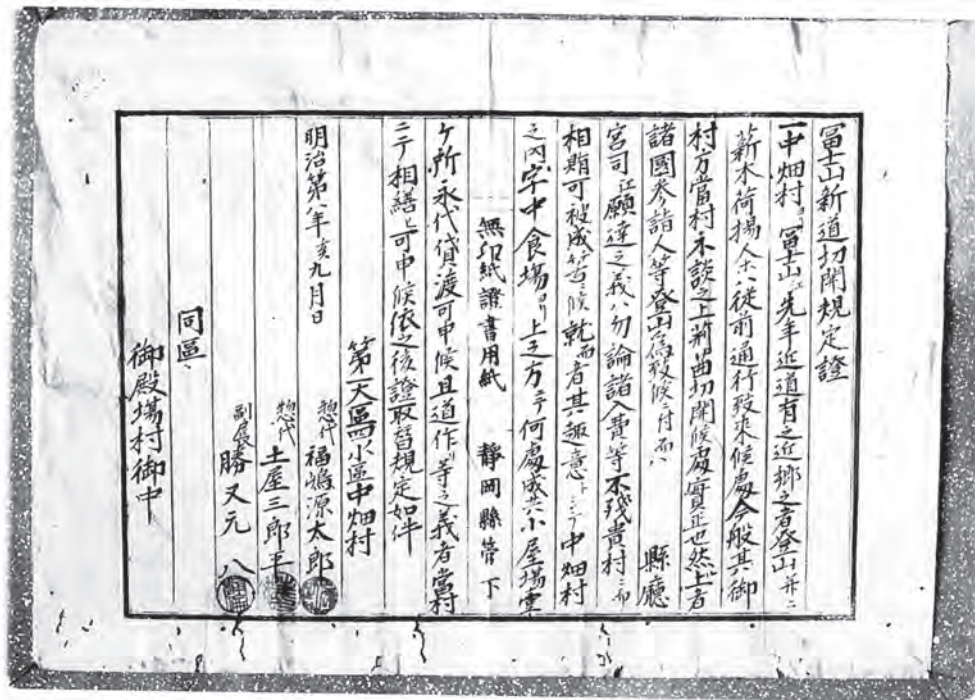 冨士山新道切開規定證
一中畑村ゟ冨士山江先年近道有之近郷之者登山并ニ
薪木荷揚人ホハ従前通行致来候處今般其御
村方當村示談之上新西切開候處實正也然上者
諸國参詣人等登山為致候ニ付而ハ 縣廰
宮司江願達之義ハ勿論諸入費等不残貴村ニ而
相賄可被成筈ニ候就而者其趣意トシテ中畑村
之内字中食場ゟ上之方ニテ何處成共小屋場壱
無印紙證書用紙 靜岡縣管下
ケ所永代貸渡可申候且道作リ等之義者當村
ニテ相繕ヒ可申候依之後證取替規定如件
第一大區四小區中畑村
明治第八年亥九月日 惣代 福嶋源太郎
惣代 土屋三郎平
副戸長 勝又元八
同區
御殿場村御中